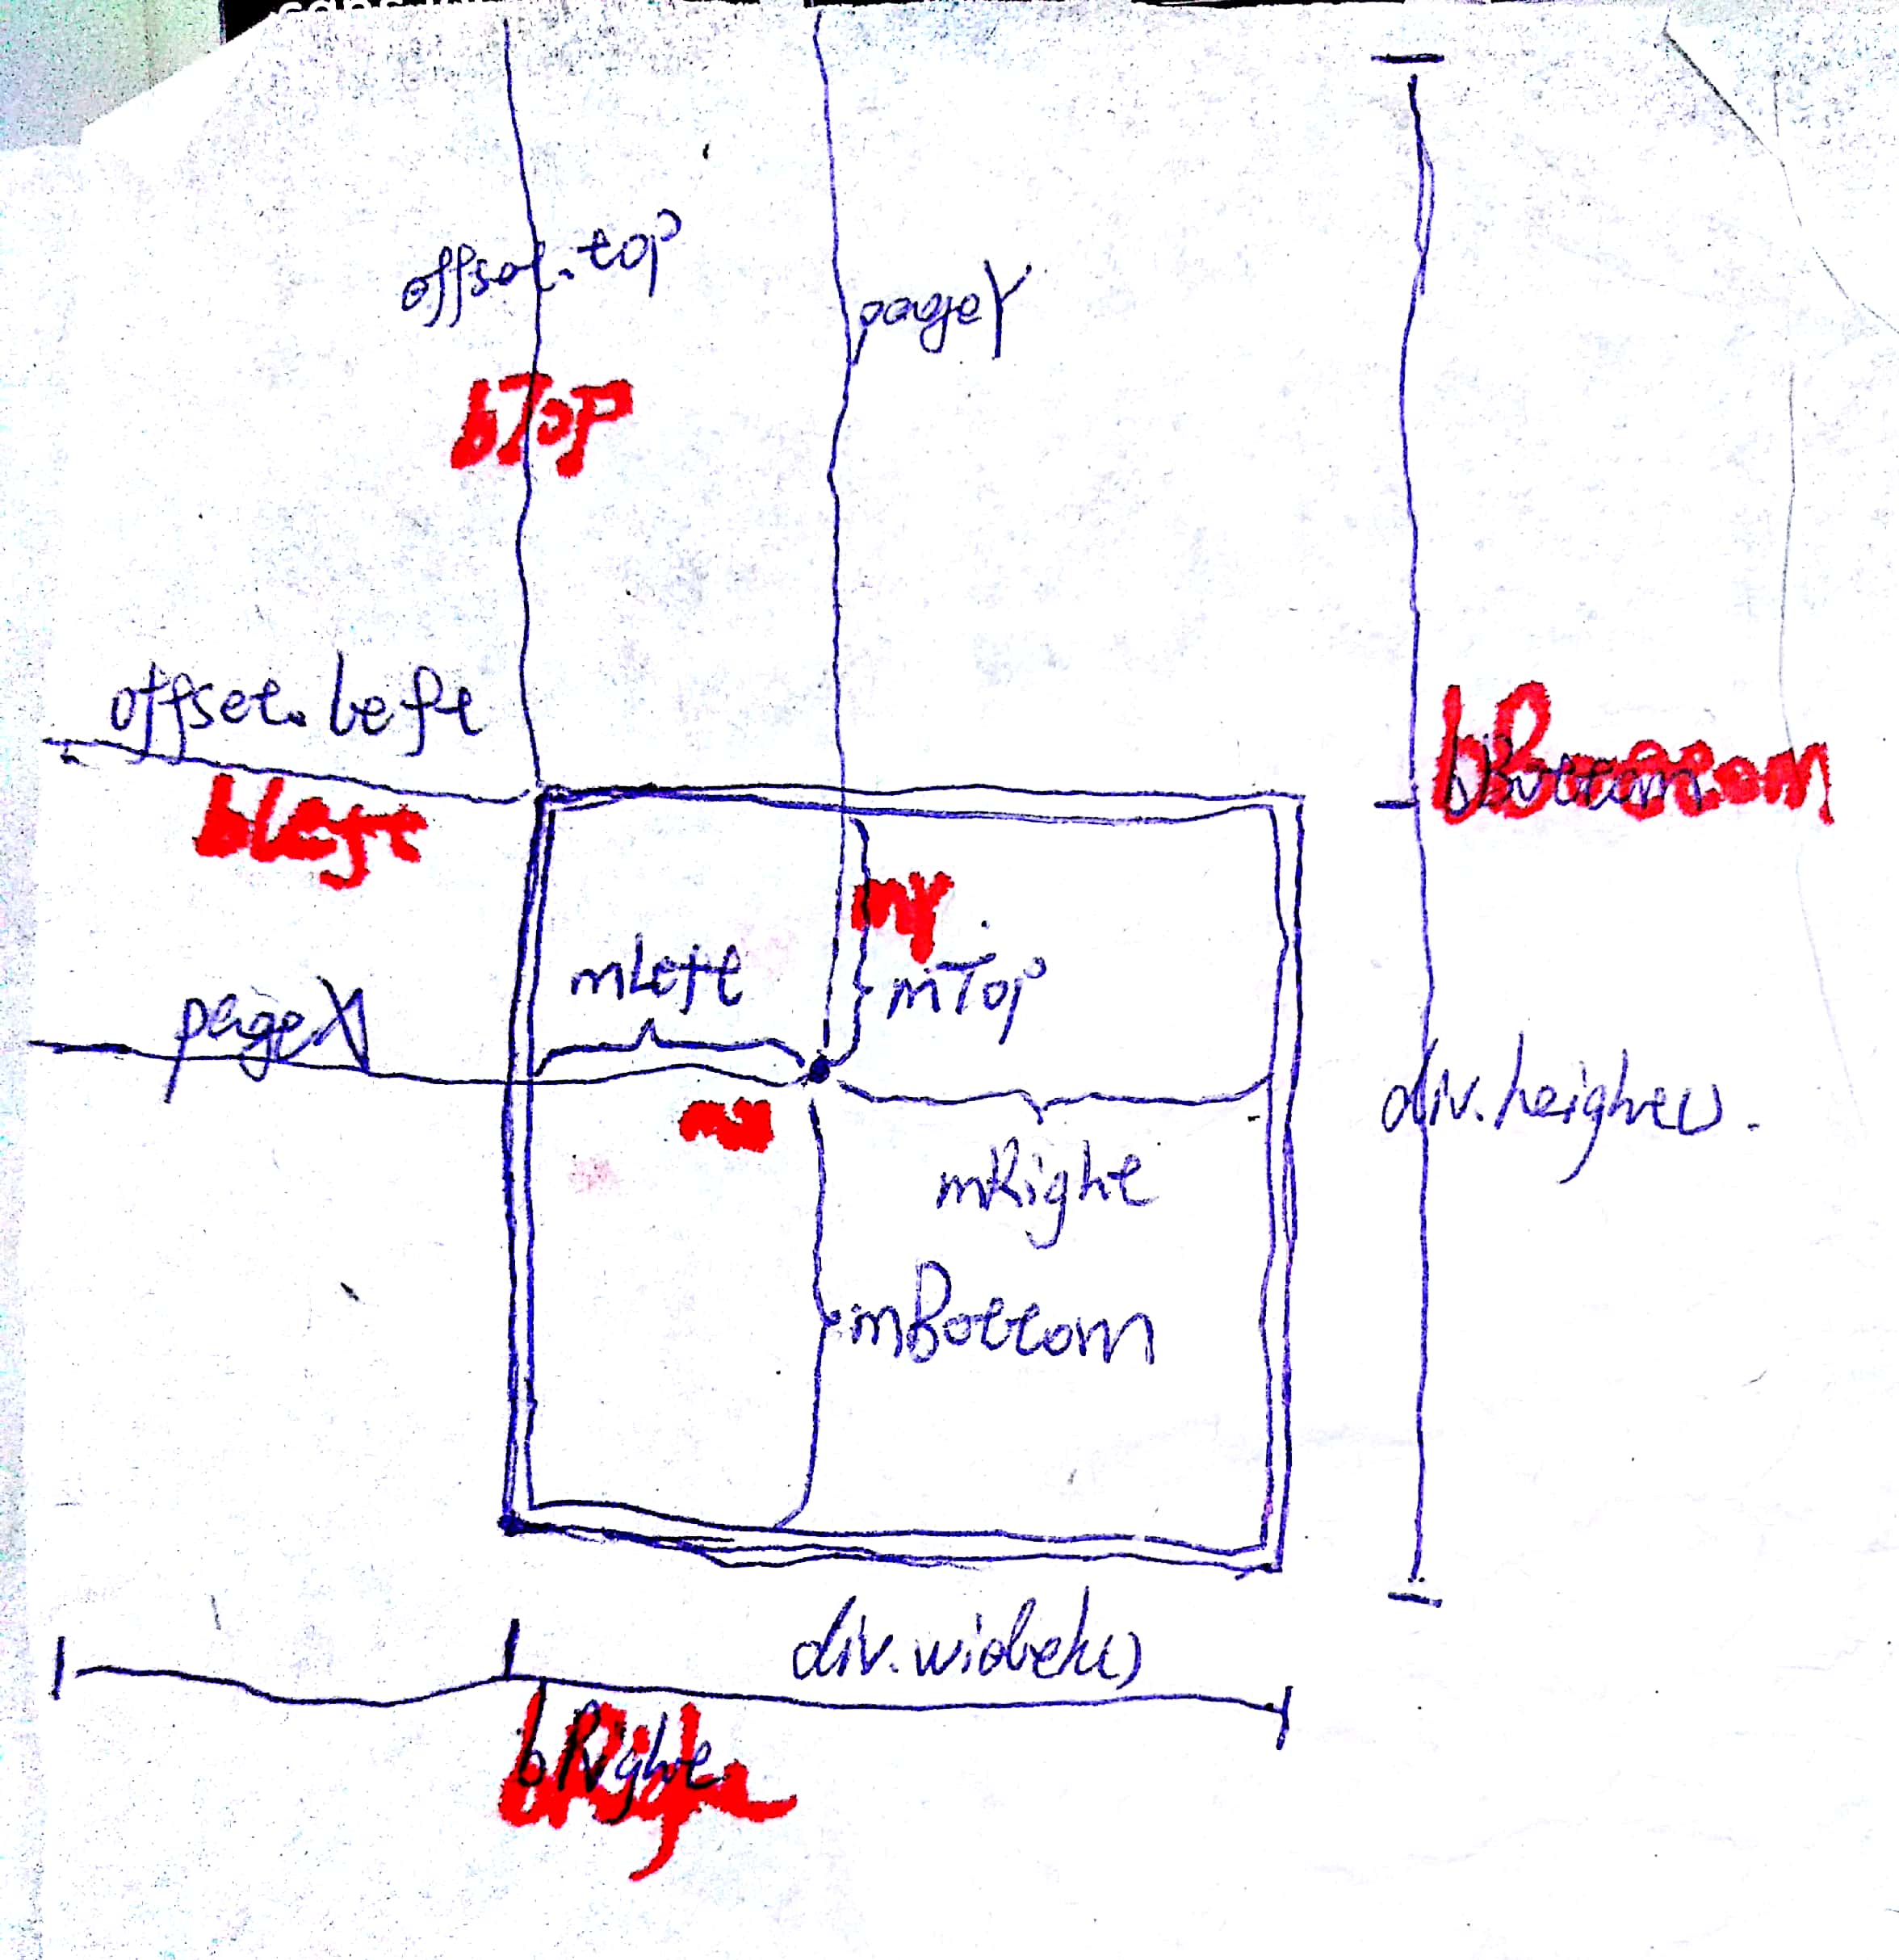 offset.top
pageY
bTop
offset.left
bLeft
bBottom
my
mLeft
mTop
pageX
mx
div.height()
mRight
mBottom
div.width()
bRight